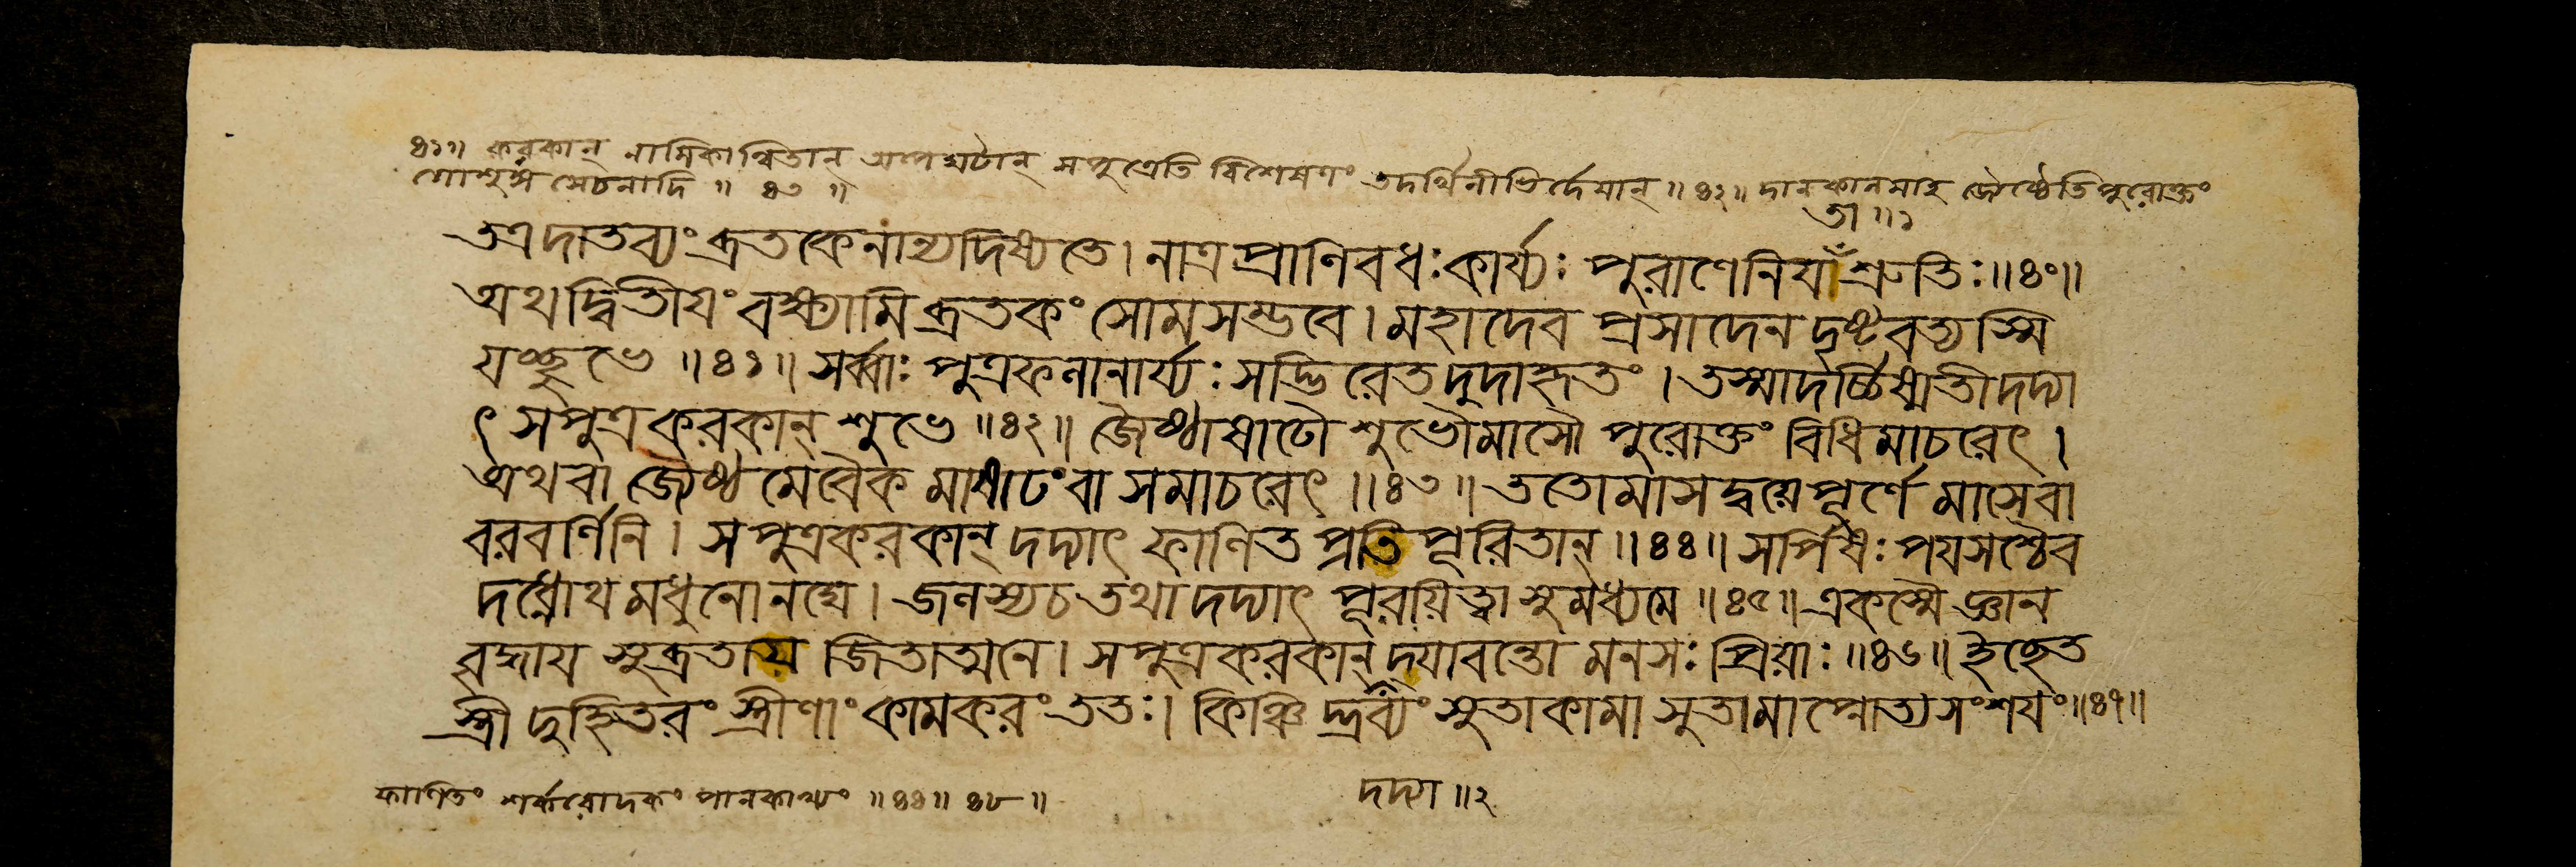 ৪১॥ করকান্ নাসিকান্বিতান্ অপঘটান্ সপুত্রেতি বিশেষণং তদর্থিনীভির্দেয়ান্॥৪২॥ দানকালমাহ জ্যৈষ্ঠেতি পুরোক্তং
গোশৃঙ্গ সেচনাদি ॥ ৪৩ ॥
তা ॥১
তএ দাতব্যং ব্রতকে নান্যদিষ্যতে। নাত্র প্রাণিবধঃ কার্য্যঃ পুরাণেনিযাঁশ্রুতিঃ॥৪০॥
অথ দ্বিতীযং বক্ষ্যামি ব্রতকং সোমসম্ভবে। মহাদেব প্রসাদেন দৃষ্টবত্যস্মি
যচ্ছুভে ॥৪১॥ সর্ব্বাঃ পুত্রফলানার্য্যঃ সদ্ভিরেতদুদাহৃতং। তস্মাদ্দর্চ্চিষ্মতী দদ্যা
ৎ সপুত্রকরকান্ শুভে ॥৪২॥ জ্যৈষ্ঠাষাঢৌ শুভৌমাসৌ পুরোক্তং বিধিমাচরেৎ।
অথবা জ্যৈষ্ঠমেবৈকমাষাঢং বা সমাচরেৎ ॥৪৩॥ ততোমাসদ্বয়ে পূর্ণে মাসেবা
বরবর্ণিনি। সপুত্রকরকান্ দদ্যাৎ ফাণিত প্রতিপূরিতান্॥৪৪॥ সর্পিষঃ পযসশ্চৈব
দধ্নোথ মধুনোনঘে। জলস্যচ তথা দদ্যাৎ পূরয়িত্বা সুমধ্যমে ॥৪৫॥ একস্মৈ জ্ঞান
বৃদ্ধায সুব্রতায় জিতাত্মনে। সপুত্রকরকান্ দ্যাবন্তো মনসঃ প্রিয়াঃ॥৪৬॥ ইহেত
স্ত্রী দুহিতরং স্ত্রীণাং কামকরং ততঃ। কিঞ্চি দ্দ্রব্যং সুতাকামা সুতামাপ্নোত্যসংশযং॥৪৭॥
ফাণিতং শর্করোদকং পানকাখ্যং ॥৪৪॥ ৪৮॥
দদ্যা ॥২